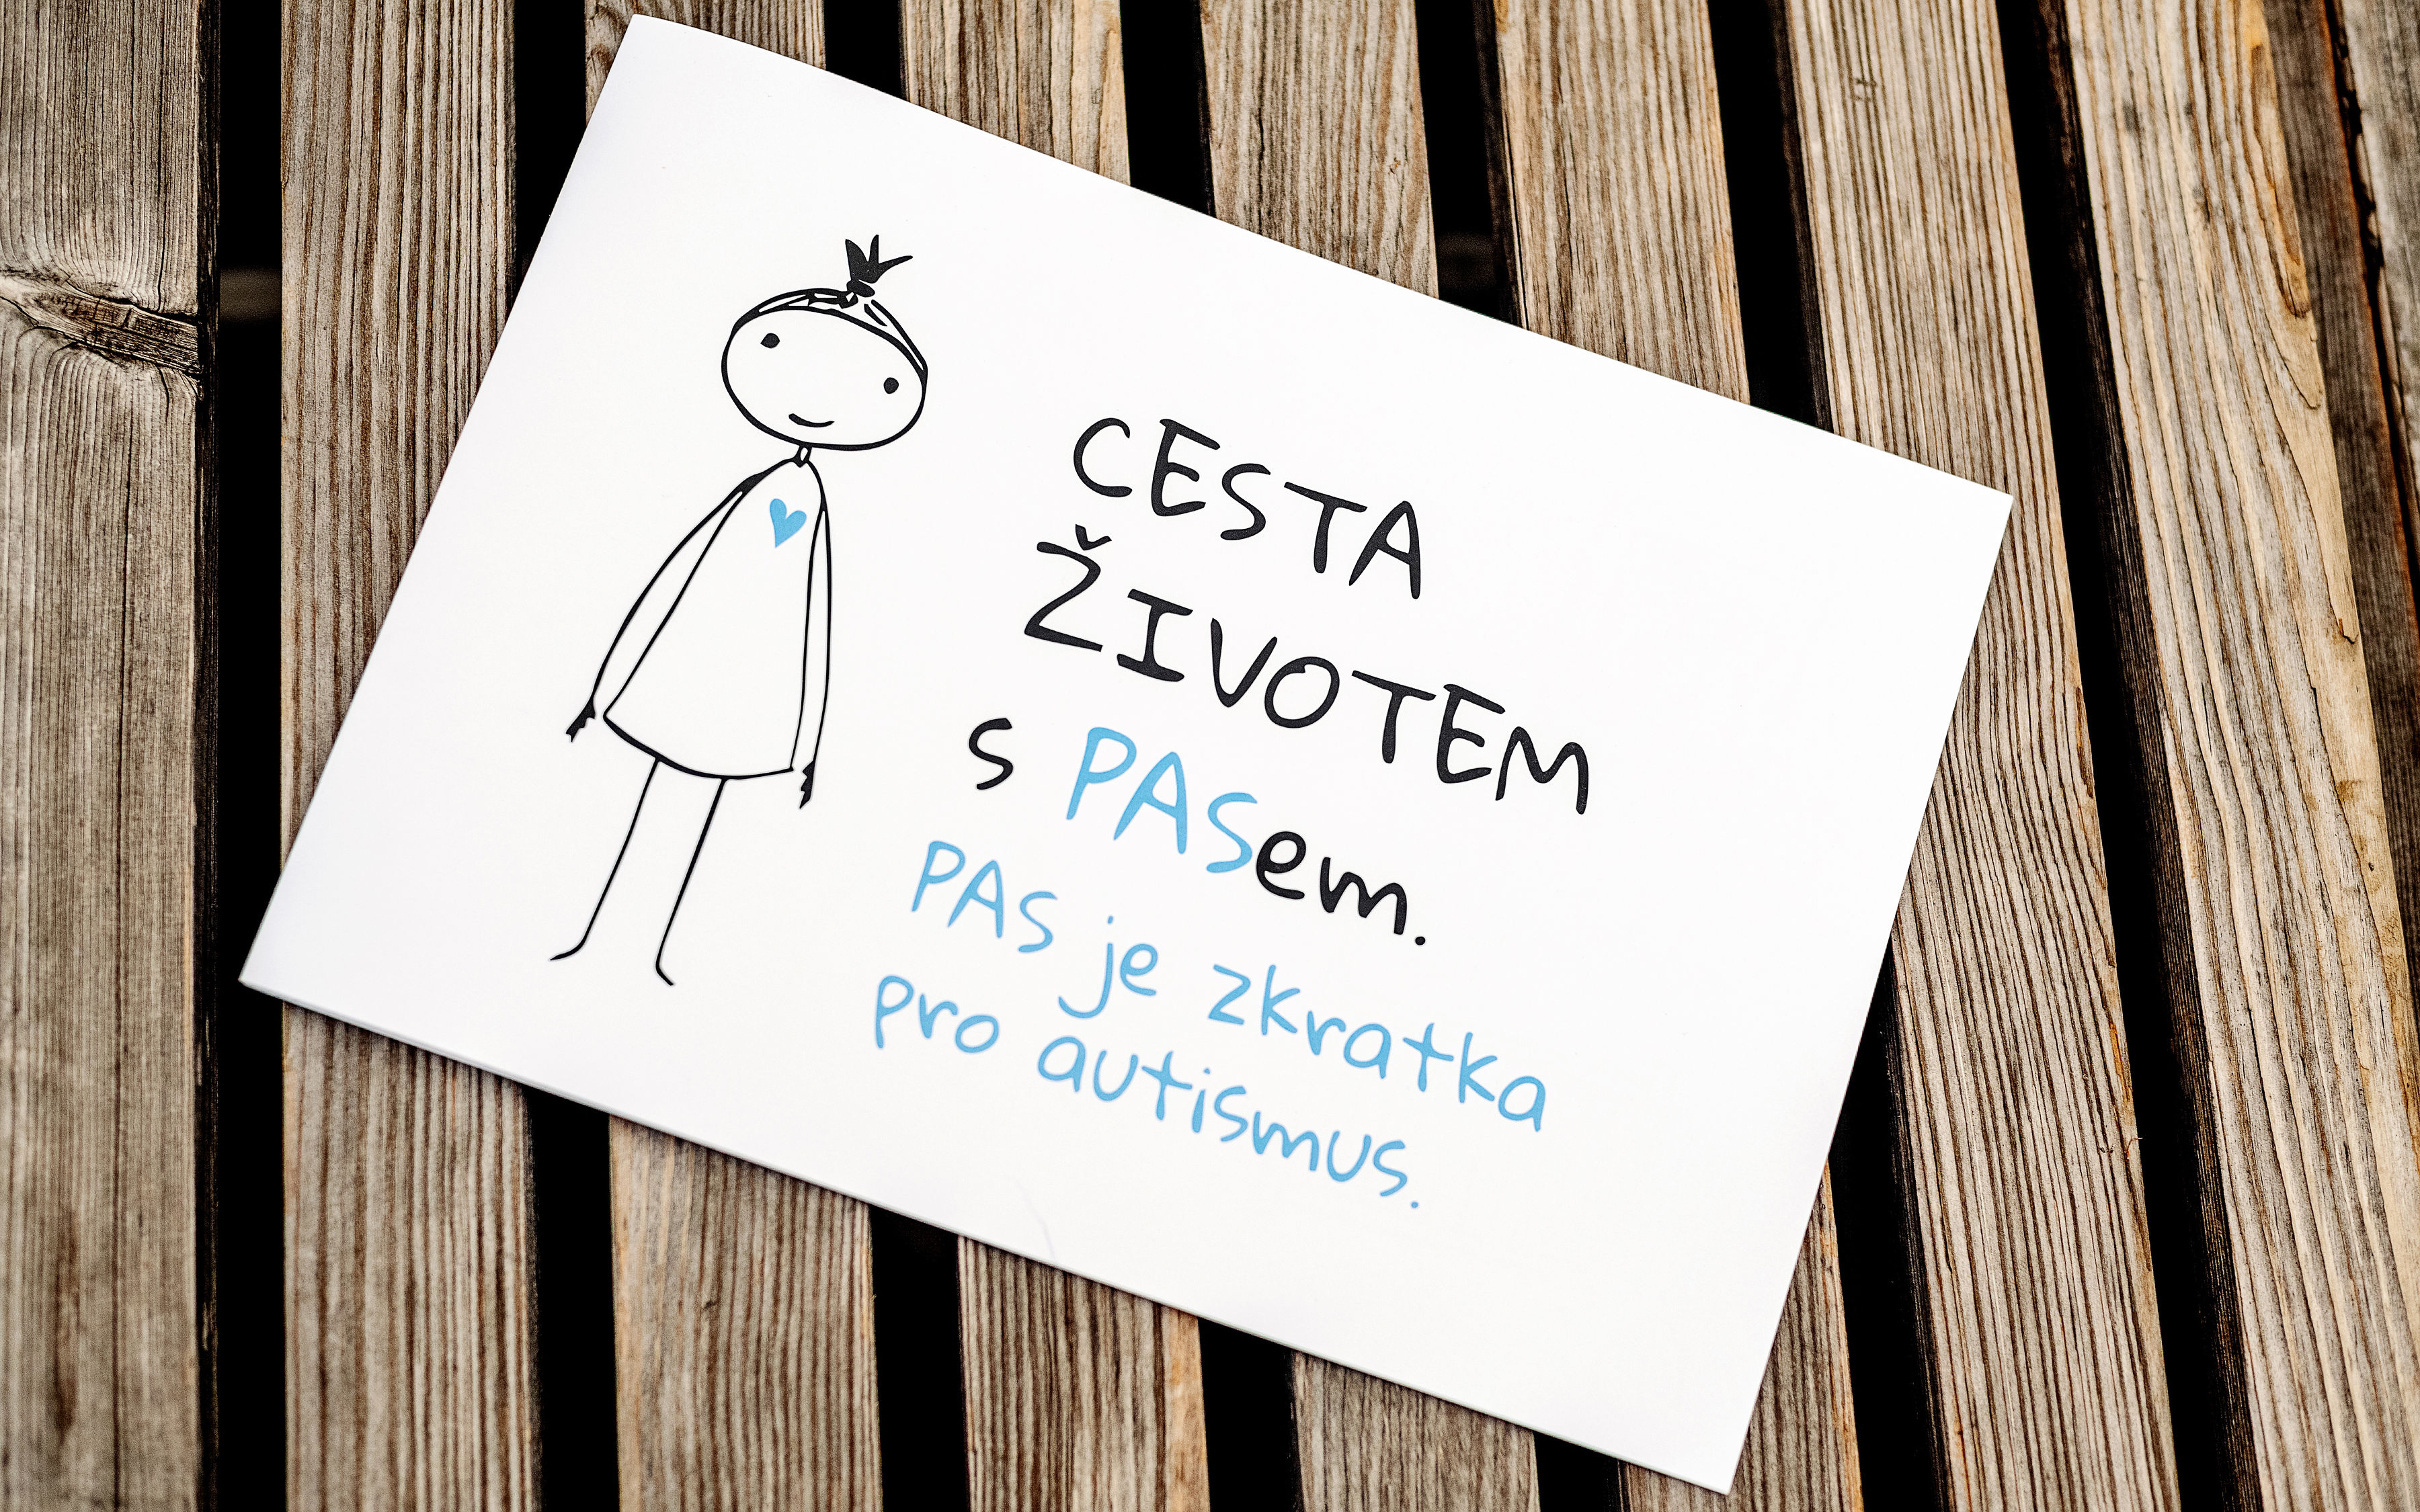 CESTA
ŽIVOTEM
s PASem.
PAS je zkratka
pro autismus.